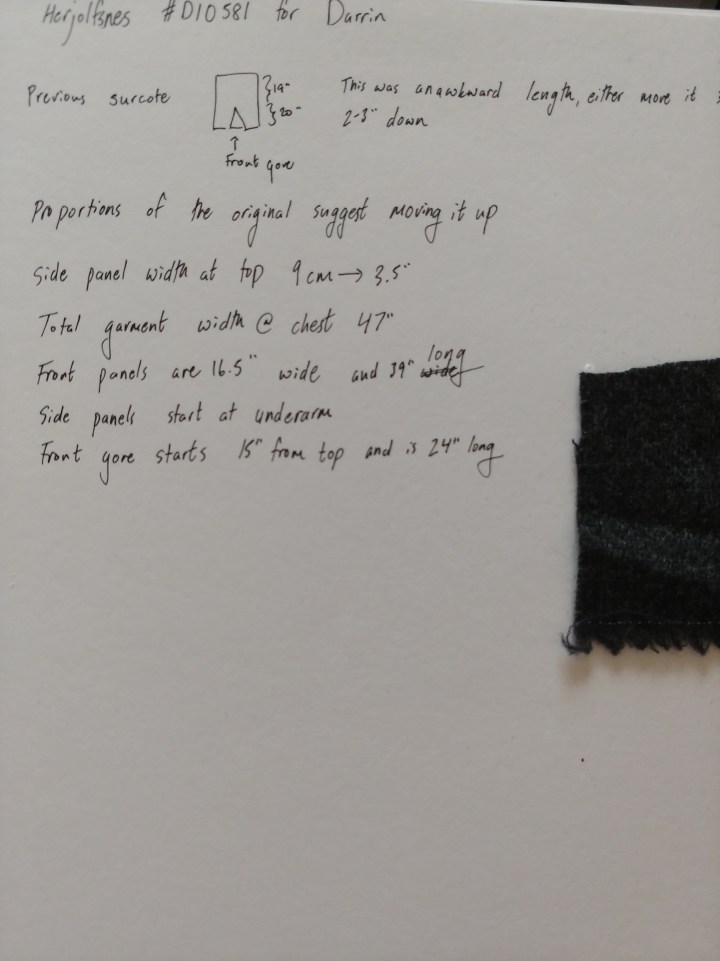 Herjolfsnes #D10581 for Darrin
Previous surcote
19"
20"
Front gore
This was an awkward length, either move it
2-3" down
Proportions of the original suggest moving it up
Side panel width at top 9cm → 3.5"
Total garment width @ chest 47"
Front panels are 16.5" wide and 39" wide long
Side panels start at underarm
Front gore starts 15" from top and is 24" long